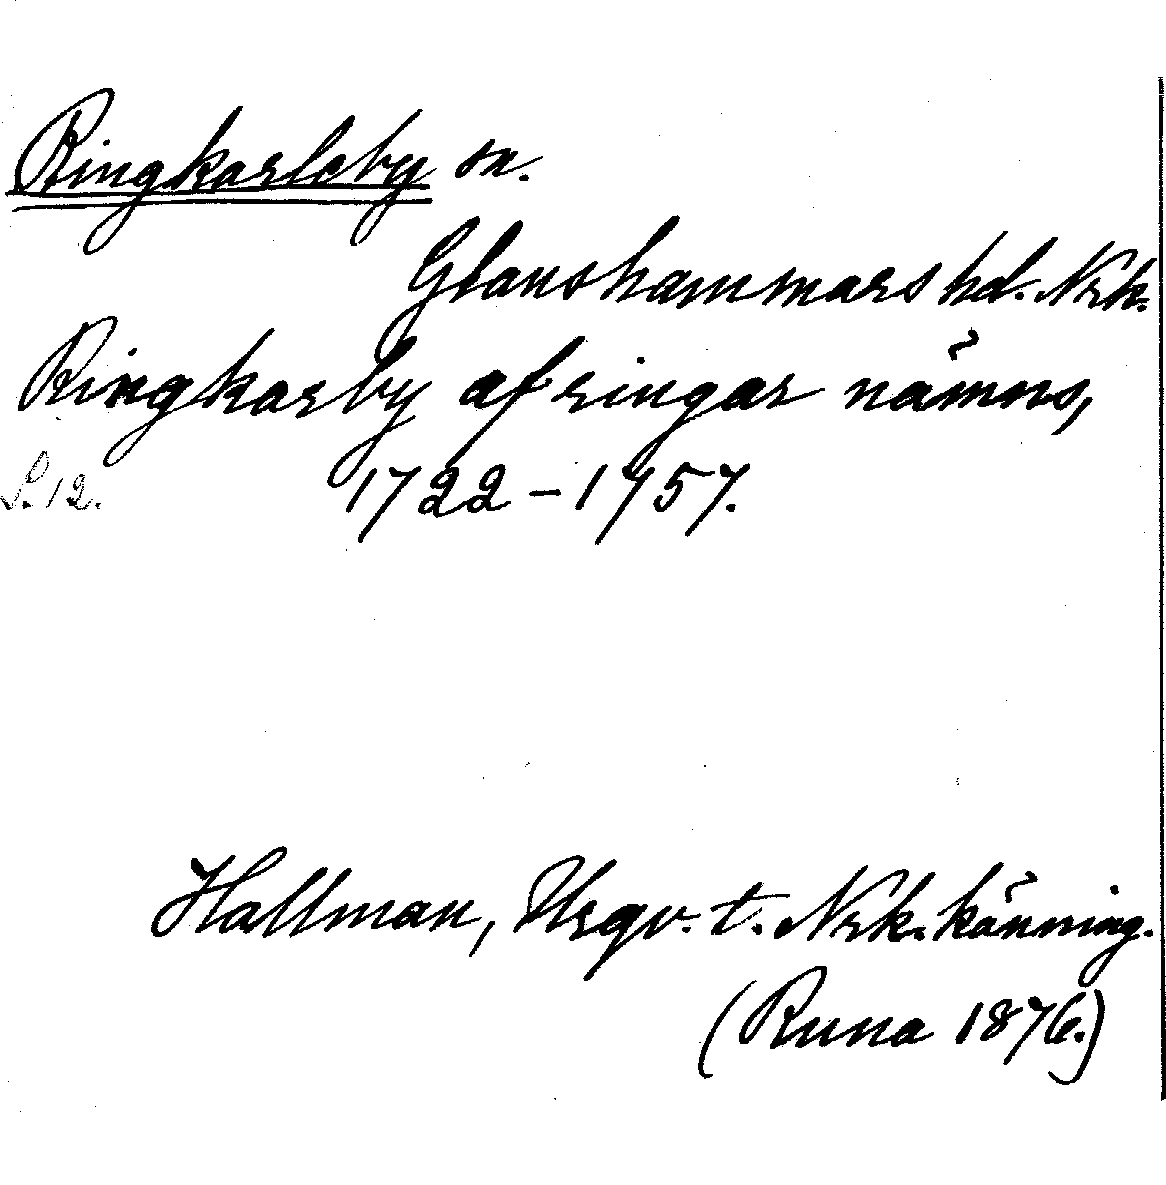 Ringkarleby sn.
Glanshammars hd. Nrk.
Ringkarby af ringar nämns,
S. 12. 1722 – 1757.
Hallman, Hrgv. t. Nrk. känning.
(Runa 1876.)